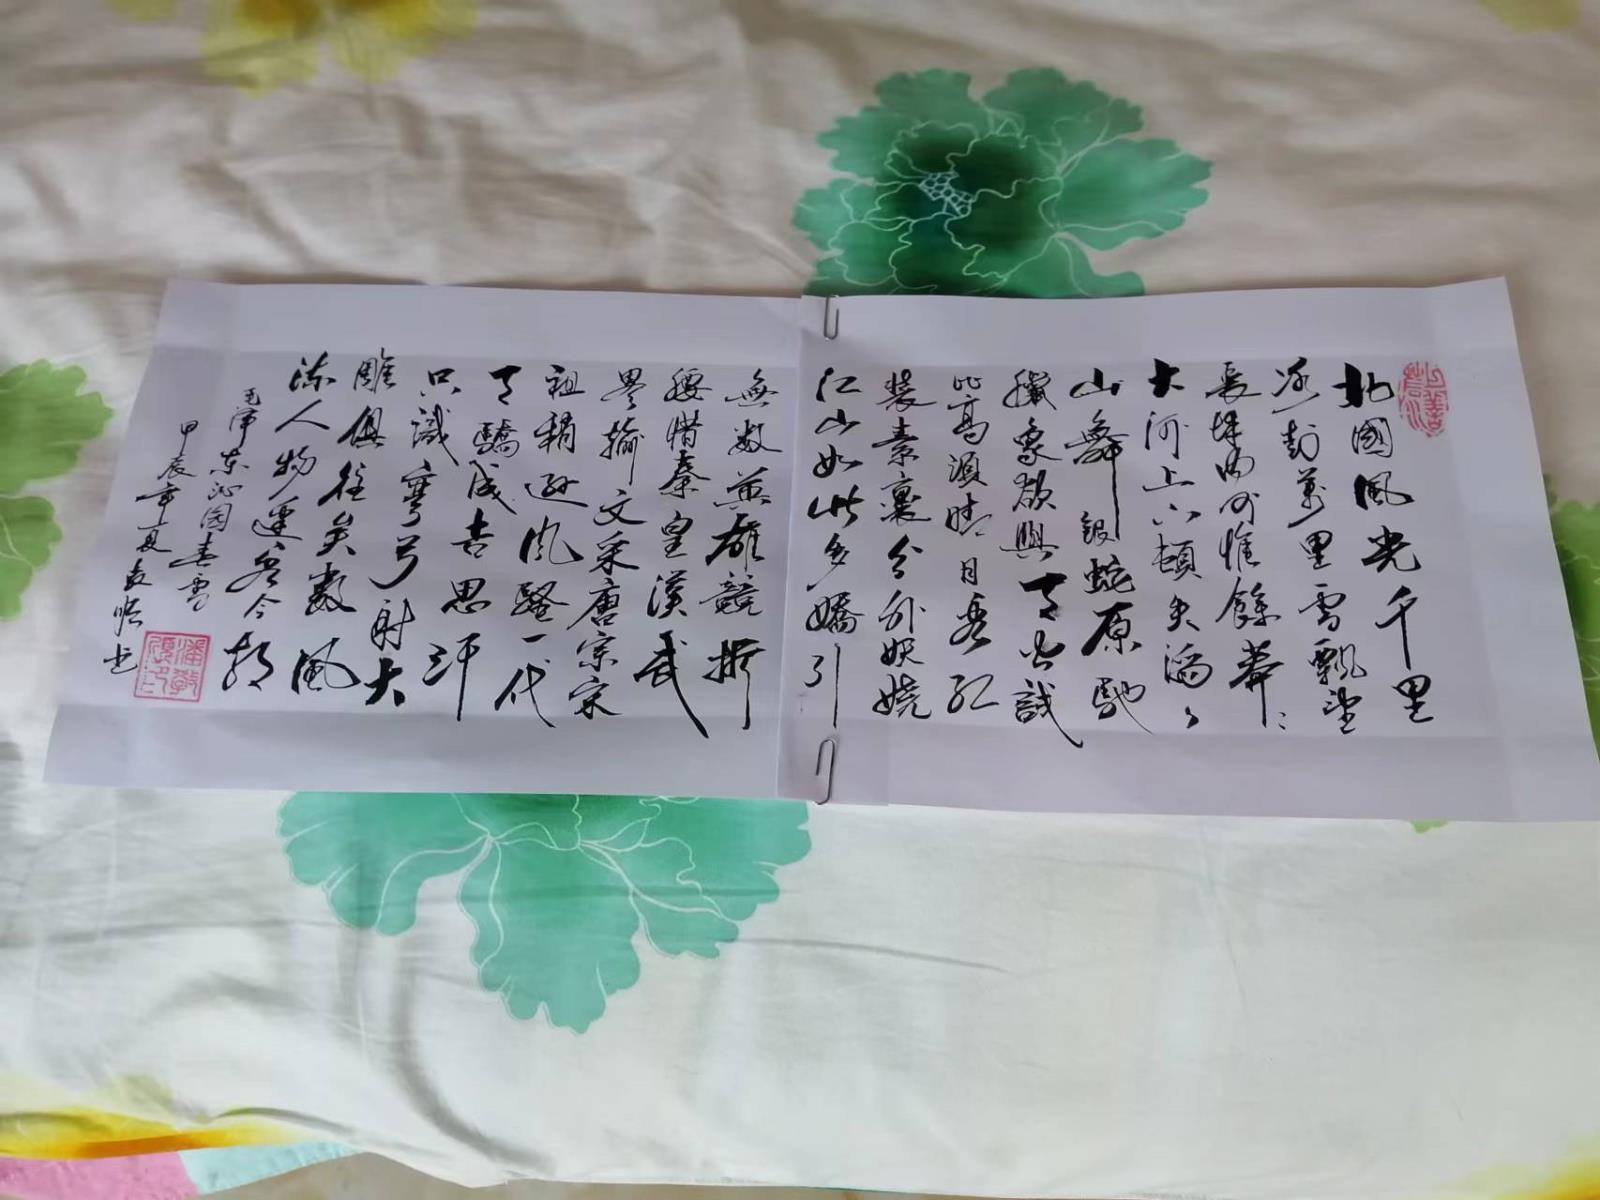 上善若水
北國風光千里
冰封萬里雪飄望
長城內外惟餘莽〻
大河上下頓失滔〻
山舞銀蛇原馳
蠟象欲與天公試
比高須晴日看紅
裝素裹分外妖嬈
江山如此多嬌引
無數英雄競折
腰惜秦皇漢武
畧輸文采唐宗宋
祖稍遜風騷一代
天驕成吉思汗
只識彎弓射大
雕俱往矣數風
流人物還看今朝
毛澤東沁園春雪
甲辰年夏書